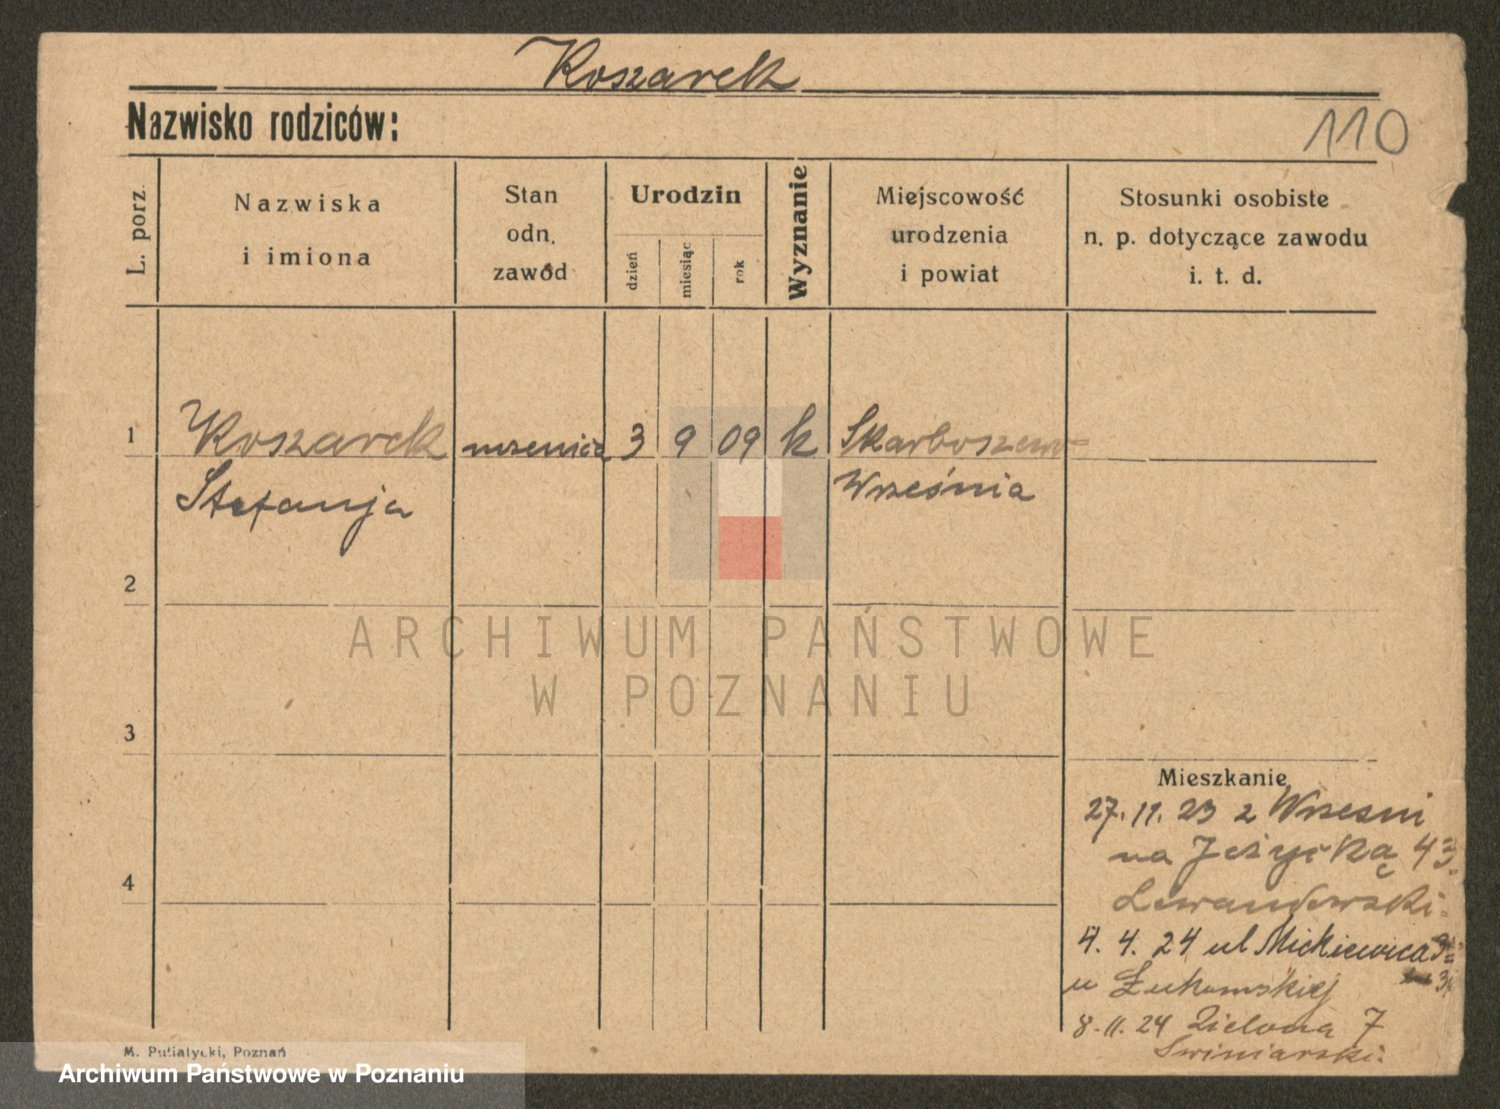 Koszarek
Nazwisko rodziców:
110
L. porz.
Nazwiska
i imiona
Stan
odn.
zawód
Urodzin
dzień
miesiąc
rok
Wyznanie
Miejscowość
urodzenia
i powiat
Stosunki osobiste
n. p. dotyczące zawodu
i. t. d.
1 Koszarek 3 9 09 k Skarboszewo
Stefanja Września
2
ARCHIWUM PAŃSTWOWE
W POZNANIU
3
Mieszkanie
27. 11. 23 z Wrzesni
na Jeżycką 43.
4
Lewandowski.
4. 4. 24 ul Mickiewicza
u Łukomskiej
8. 11. 24 Zielona 7
Swiniarski.
M. Putiatycki, Poznań
Archiwum Państwowe w Poznaniu